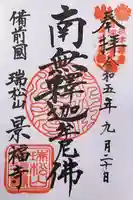 奉拝
令和五年九月二十日
南無釋迦牟尼佛
備前國
瑞松山
景福寺